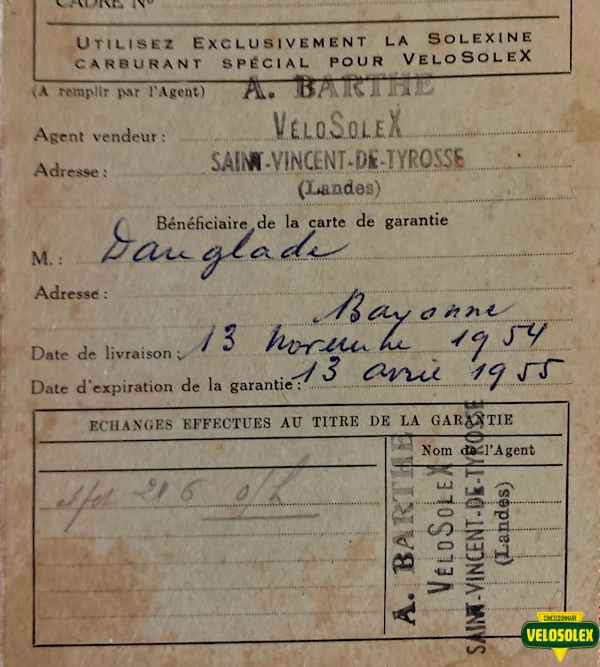 CADRE Nº
UTILISEZ EXCLUSIVEMENT LA SOLEXINE
CARBURANT SPÉCIAL POUR VELOSOLEX
(A remplir par l'Agent) A. BARTHE
Agent vendeur : VÉLOSOLEX
Adresse : SAINT-VINCENT-DE-TYROSSE
(Landes)
Bénéficiaire de la carte de garantie
M. : Danglade
Adresse :
Bayonne
Date de livraison : 13 novembre 1954
Date d'expiration de la garantie : 13 avril 1955
ECHANGES EFFECTUES AU TITRE DE LA GARANTIE
Nom de l'Agent
A. BARTHE
VÉLOSOLEX
SAINT-VINCENT-DE-TYROSSE
(Landes)
CONCESSIONNAIRE
VELOSOLEX